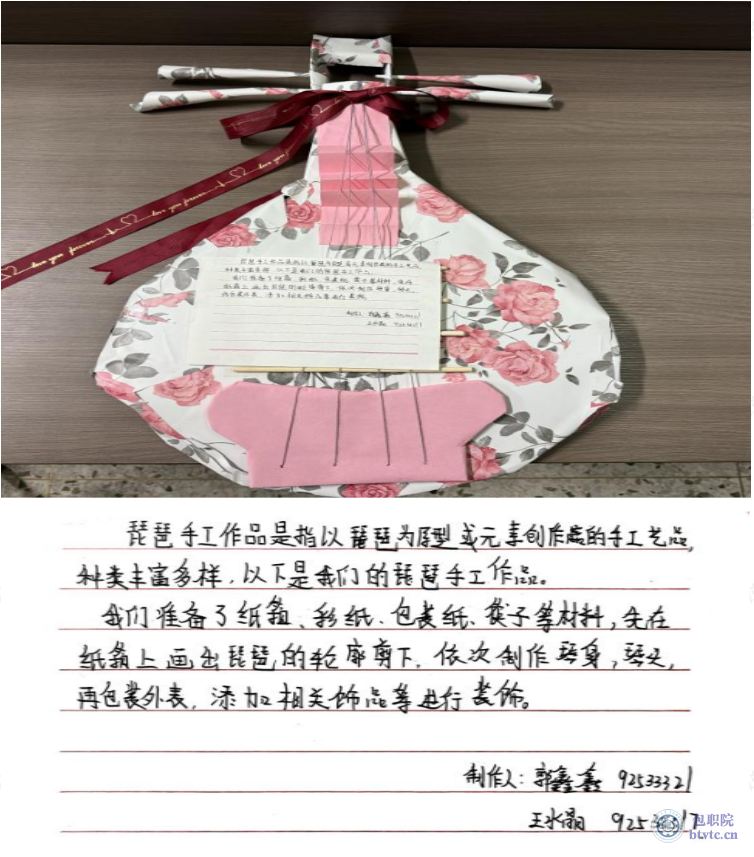 love you forever
love you forever
琵琶手工作品是指以琵琶为原型或元素创作出的手工艺品,
种类丰富多样,以下是我们的琵琶手工作品。
我们准备了纸箱、彩纸、包装纸、筷子等材料,先在
纸箱上画出琵琶的轮廓剪下,依次制作琴身,琴头,
再包装外表,添加相关饰品等进行装饰。
制作人:郭鑫鑫 92533321
王水晶 9253
包职院
btvtc.cn